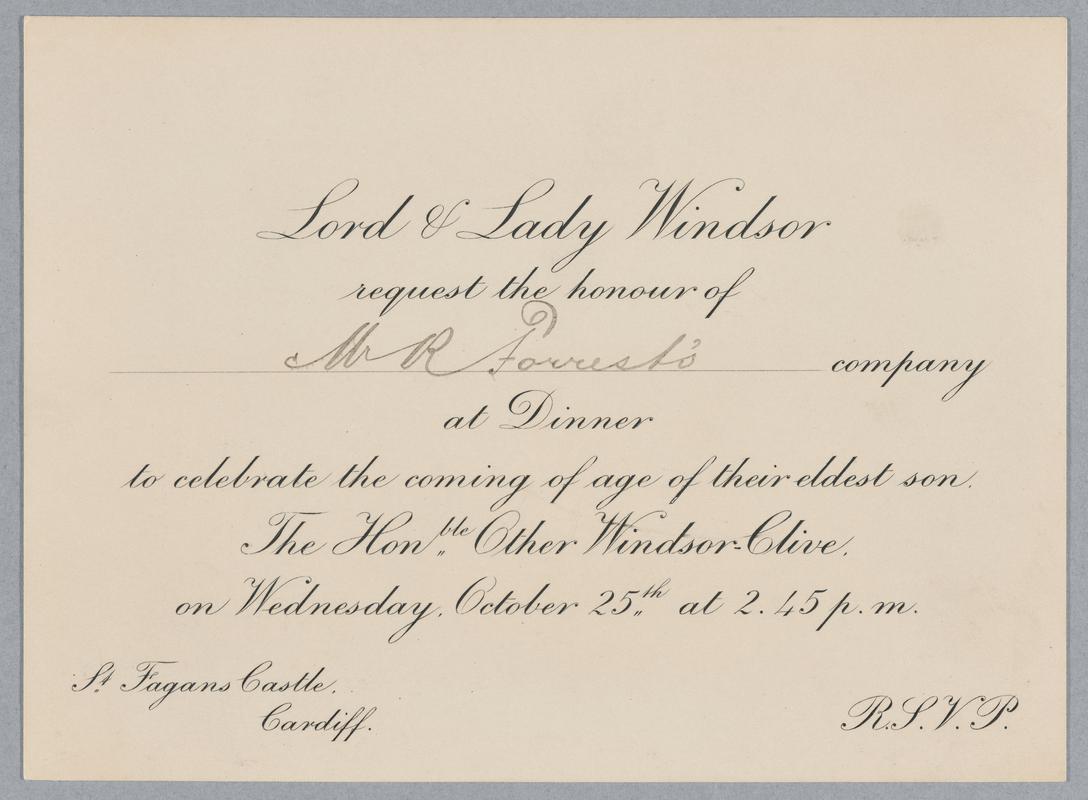 Lord & Lady Windsor
request the honour of
Mr R Forrest's company
at Dinner
to celebrate the coming of age of their eldest son.
The Hon„ble Other Windsor-Clive,
on Wednesday, October 25„th at 2.45 p.m.
St Fagans Castle,
Cardiff.
R.S.V.P.